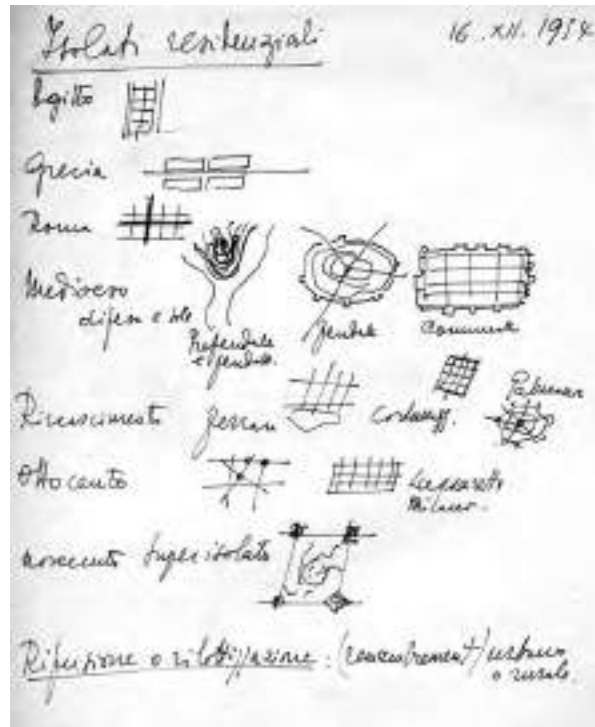 Isolati residenziali 16.XII.1954
Egitto
Grecia
Roma
Medioevo
difesa e
Prefeudale
e feudale.
feudale
Comunale
Rinascimento Ferrara Palmanova
Ottocento Lazzaretto
Milano.
novecento Superisolato
Rifusione o rilottizzazione: (remembrement) urbano
o rurale.